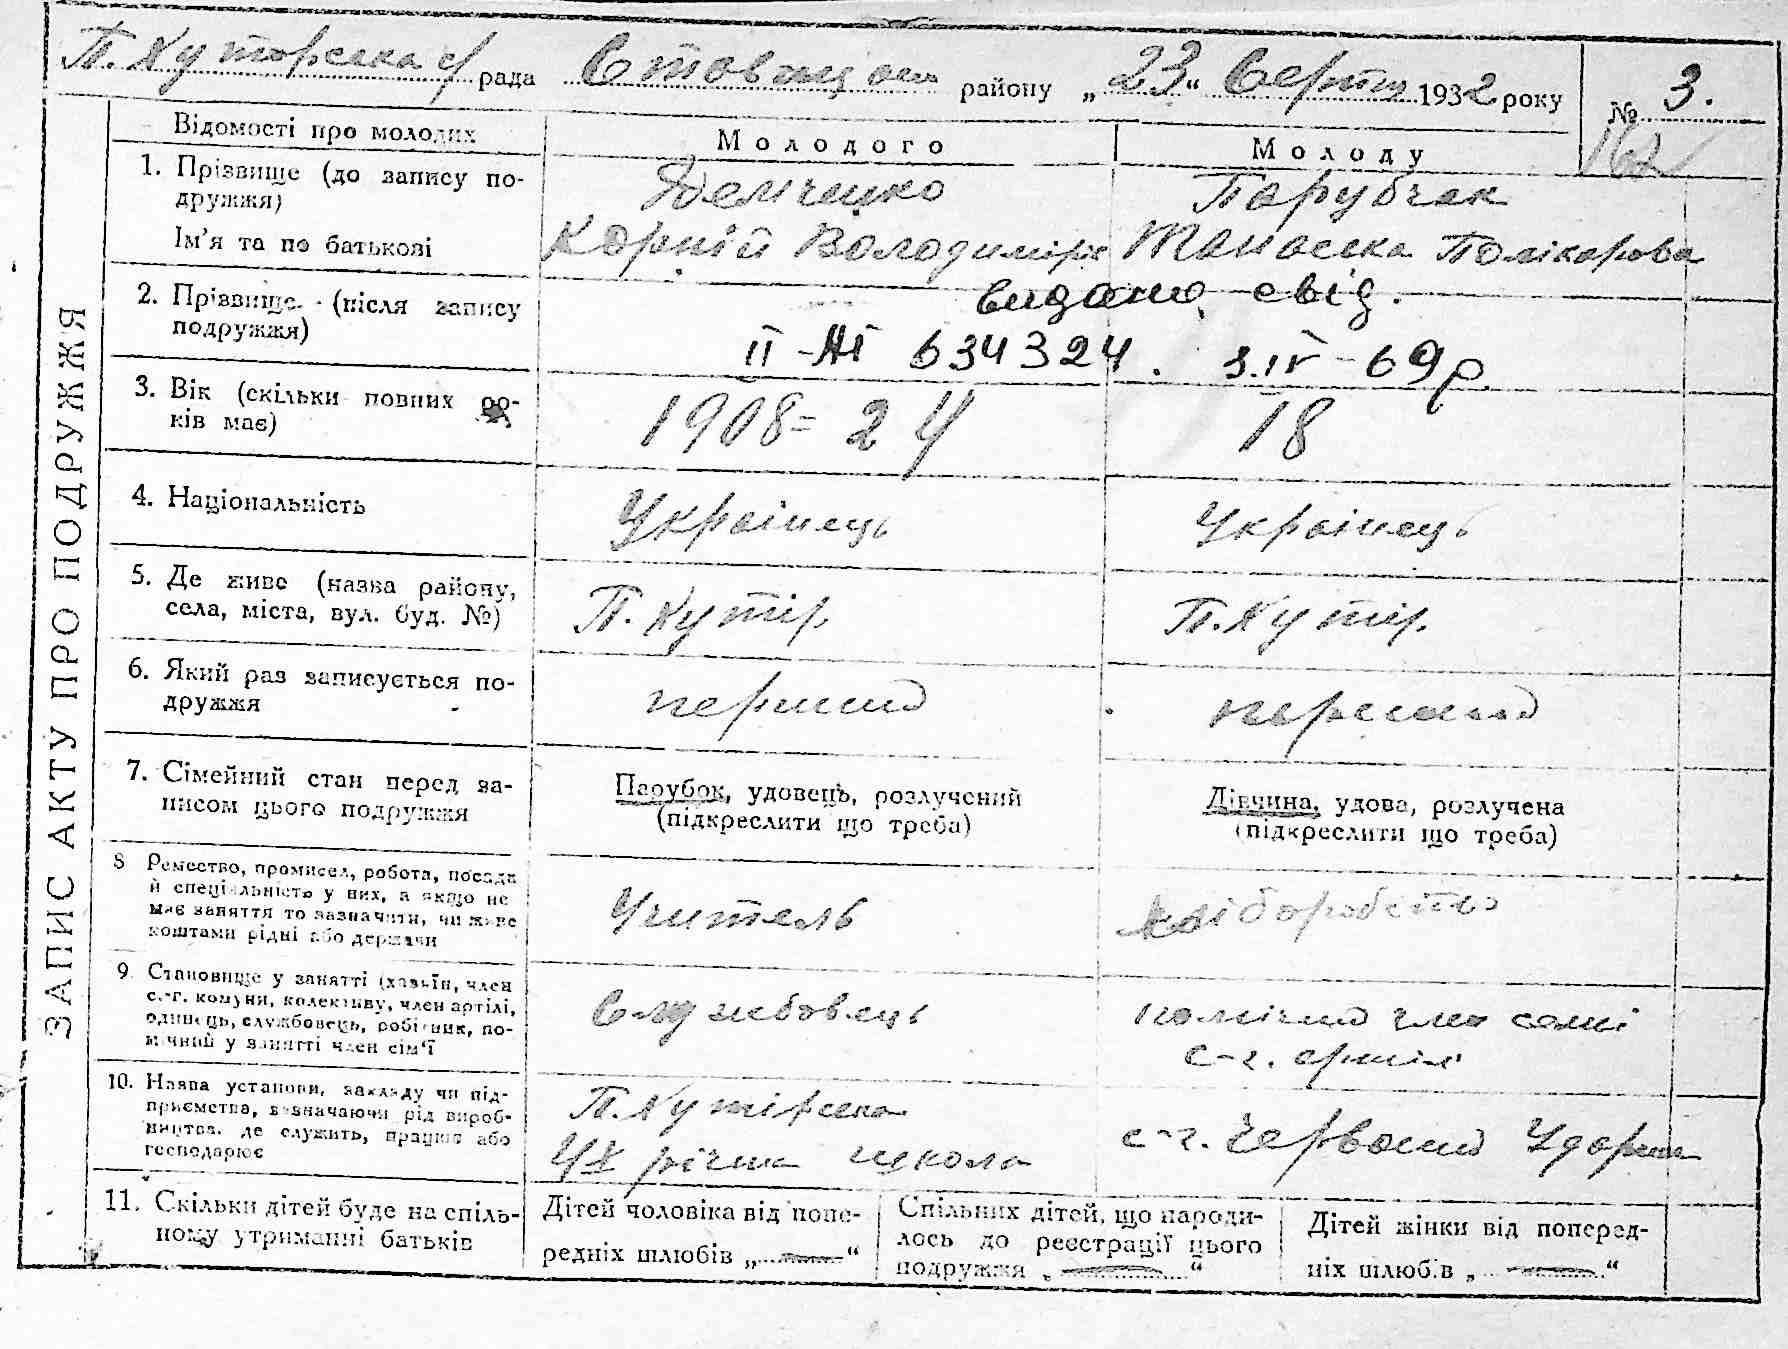 П. Хуторська с/ рада Ставищан району „23“ Серпня 1932 року № 3.
ЗАПИС АКТУ ПРО ПОДРУЖЖЯ
Відомості про молодих Молодого Молоду
1. Прізвище (до запису по- Демченко Парубчак
дружжя)
Ім'я та по батькові Корній Володимірів Танаска Полікарпова
2. Прізвище (після запису видано свід.
подружжя) II-АІ 634324. 3.IV-69р
3. Вік (скільки повних ро- 1908= 24 18
ків має)
4. Національність Українець Українець
5. Де живе (назва району, П. Хутір. П. Хутір.
села, міста, вул. буд. №)
6. Який раз записується по- перший перший
дружжя
7. Сімейний стан перед за- Парубок, удовець, розлучений Дівчина, удова, розлучена
писом цього подружжя (підкреслити що треба) (підкреслити що треба)
8 Ремество, промисел, робота, посада
й спеціальність у них, а якщо не Учитель хліборобство
має заняття то зазначити, чи живе
коштами рідні або держави
9. Становище у занятті (хазяїн, член
с.-г. комуни, колективу, член артілі, Службовець помічний член семі
одинець, службовець, робітник, по- с-г. артілі
мічний у занятті член сім'ї
10. Назва установи, закладу чи під- П. Хутірська
приємства, зазначаючи рід вироб-
ництва, де служить, працює або 4х річна школа с-г. Червоний Ударник
господарює
11. Скільки дітей буде на спіль- Дітей чоловіка від попе- Спільних дітей, що народи- Дітей жінки від поперед-
ному утриманні батьків редніх шлюбів „ — “ лось до реєстрації цього ніх шлюбів „ — “
подружжя „ — “